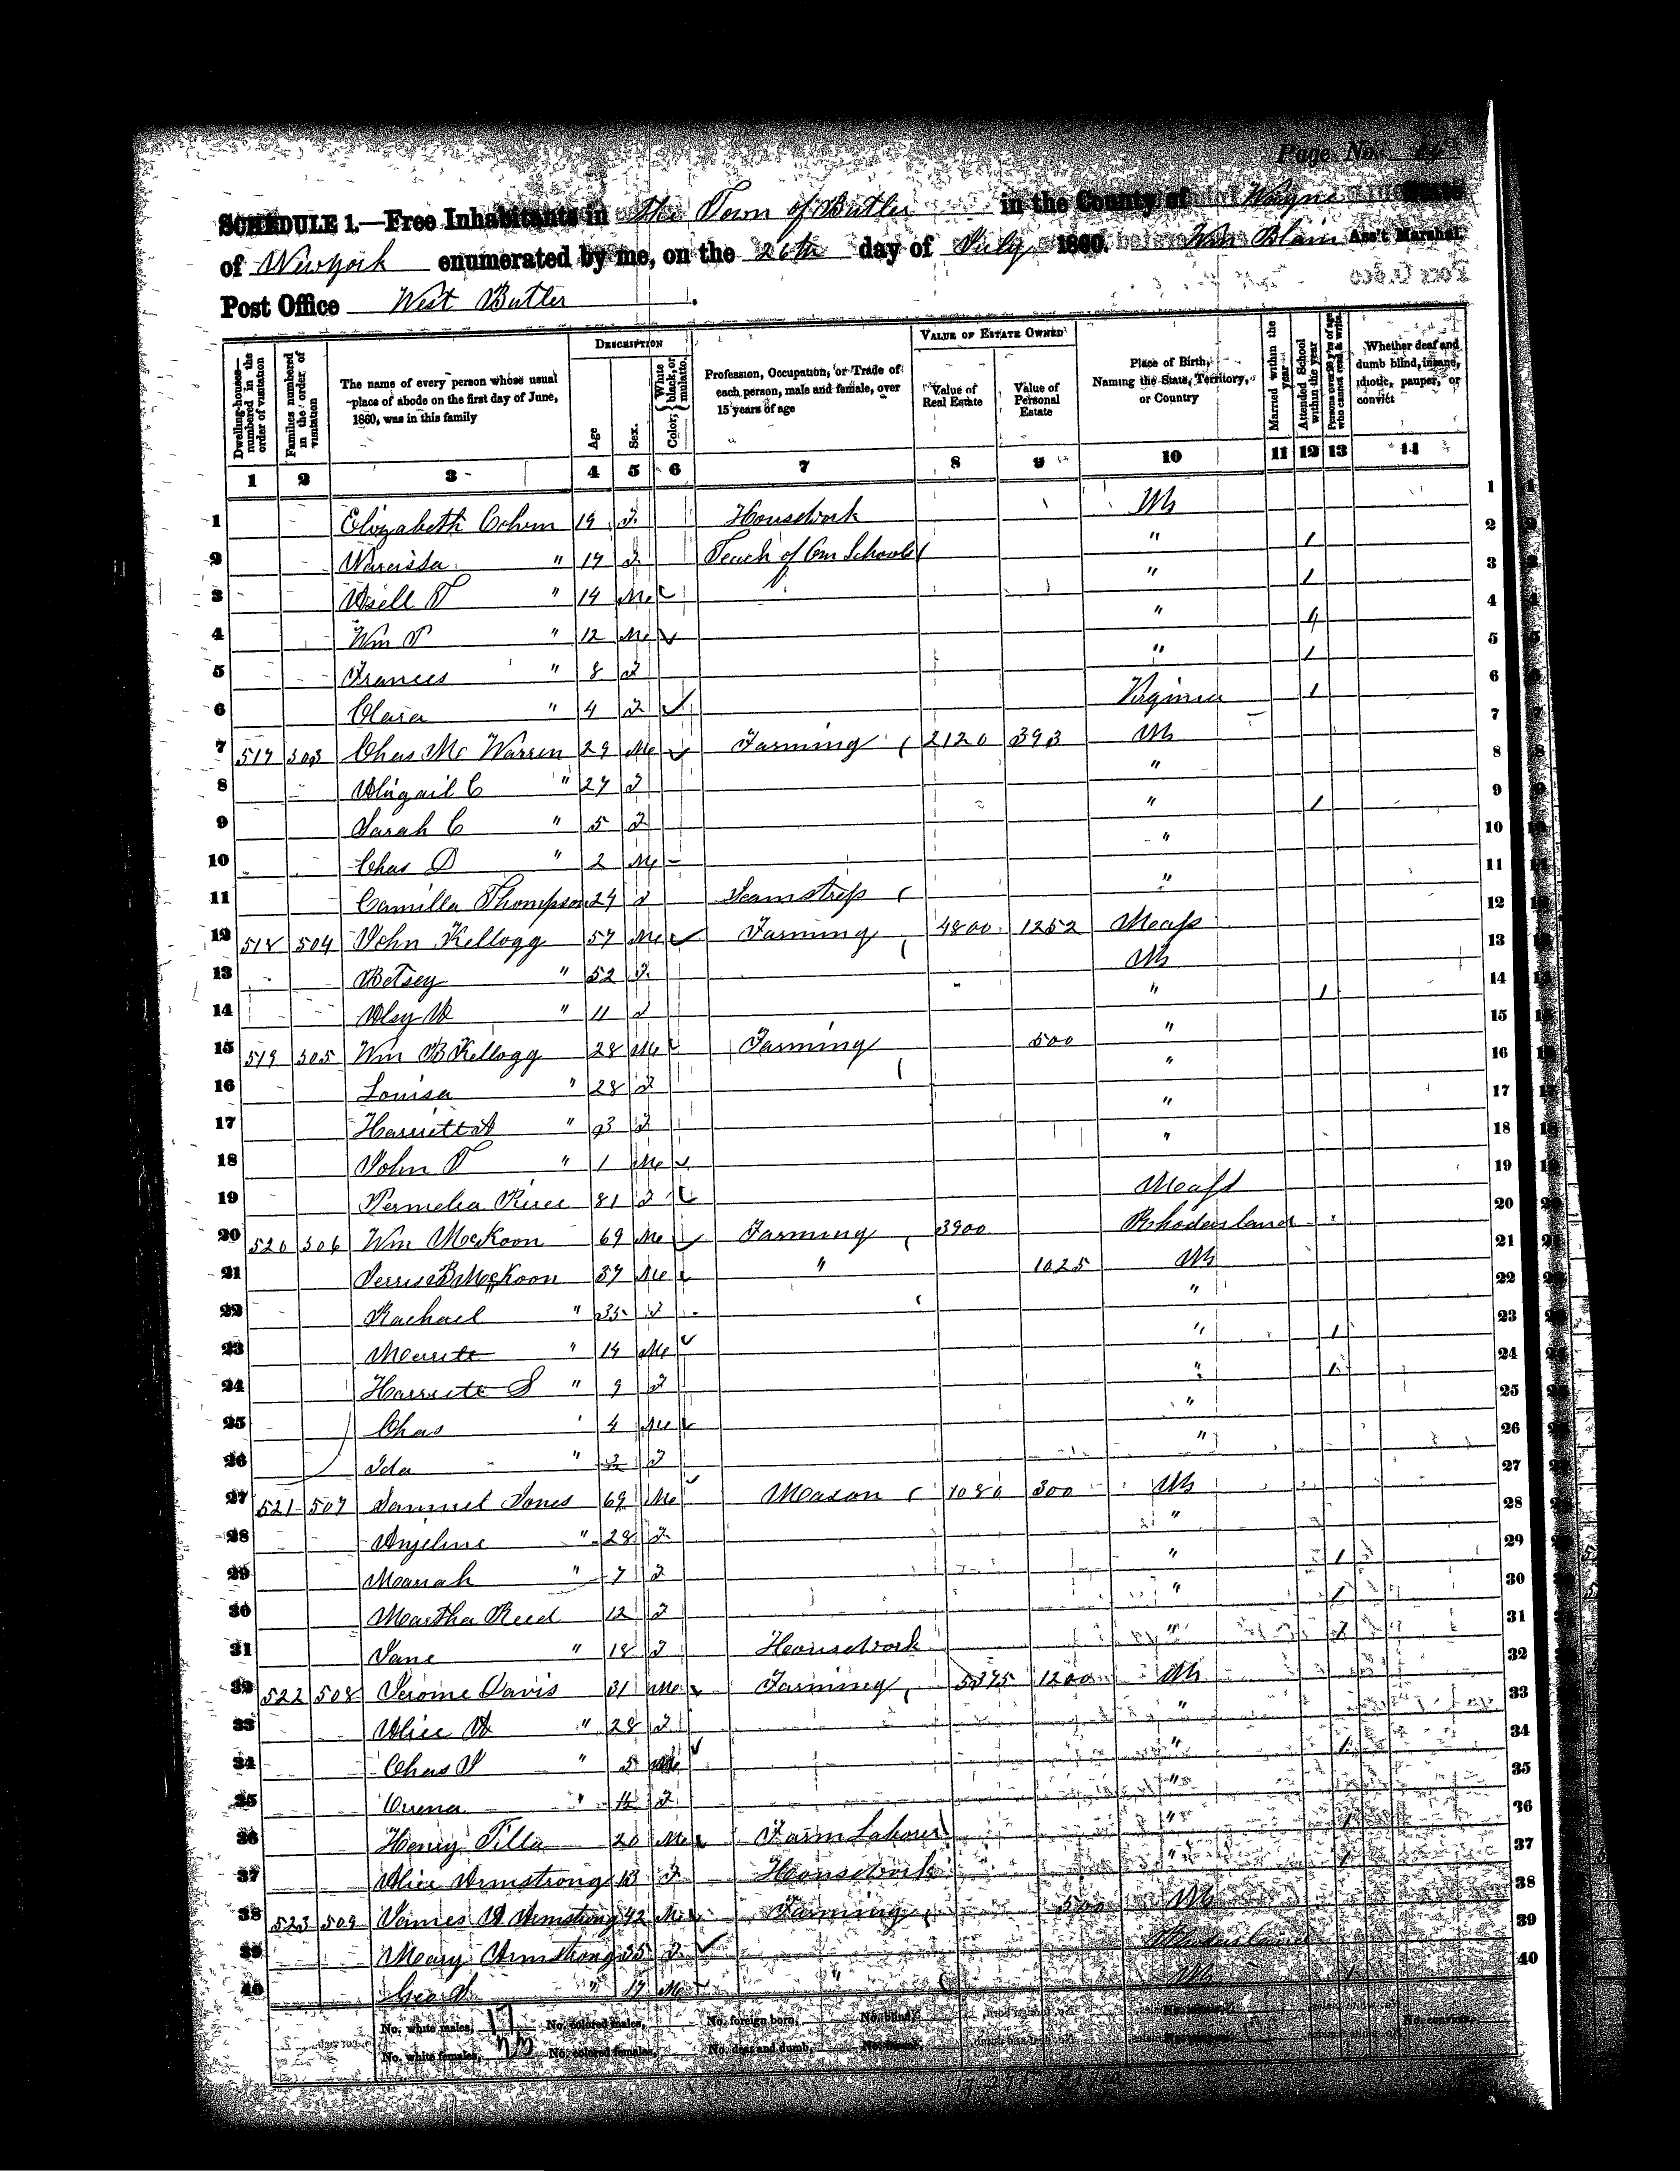 Page No.
SCHEDULE 1.—Free Inhabitants in the Town of Butler in the County of Wayne State
of New York enumerated by me, on the 26th day of July 1860. Wm Blain Ass't Marshal.
Post Office West Butler
Dwelling-houses—numbered in the order of visitation
Families numbered in the order of visitation
The name of every person whose usual place of abode on the first day of June, 1860, was in this family
DESCRIPTION
Age
Sex.
Color, White, black, or mulatto.
Profession, Occupation, or Trade of each person, male and female, over 15 years of age
VALUE OF ESTATE OWNED
Value of Real Estate
Value of Personal Estate
Place of Birth, Naming the State, Territory, or Country
Married within the year
Attended School within the year
Persons over 20 y'rs of age who cannot read & write.
Whether deaf and dumb, blind, insane, idiotic, pauper, or convict
1 2 3 4 5 6 7 8 9 10 11 12 13 14
1 Elizabeth 19 F Housework 1
2 Narcissa " 17 F Teach of Com School " 1 2
3 " 14 M " 1 3
4 Wm " 12 M " 1 4
5 Frances " 8 F " 1 5
6 Clara " 4 F Virginia 1 6
7 517 503 Chas M Warren 29 M Farming 2120 393 7
8 Abigail C " 27 F " 8
9 Sarah C " 5 F " 1 9
10 Chas D " 2 M " 10
11 Camilla Thompson 24 F Seamstress " 11
12 518 504 John Kellogg 57 M Farming 4800 1252 Mass 12
13 Betsey " 52 F 13
14 " 11 F " 1 14
15 519 505 Wm B Kellogg 28 M Farming 500 " 15
16 Louisa " 28 F " 16
17 Harriett A " 3 F " 17
18 John T " 1 M " 18
19 Permelia 81 F Mass 19
20 520 506 Wm McKoon 69 M Farming 3900 Rhodeisland 20
21 McKoon 37 M " 1025 21
22 Rachael " 35 F " 22
23 Merritt " 14 M " 1 23
24 Harriett S " 9 F " 1 24
25 Chas " 4 M " 25
26 Ida " F " 26
27 521 507 Samuel Jones 69 M Mason 1080 300 27
28 Anjeline " 28 F " 28
29 " 7 F " 1 29
30 Martha Reed 12 F " 1 30
31 Jane " 18 F Housework " 1 31
32 522 508 Jerome Davis 31 M Farming 5375 1200 32
33 Alice A " 28 F " 33
34 Chas " 5 M " 1 34
35 " F " 35
36 Henry 20 M Farm Laborer " 1 36
37 Alice Armstrong 13 F Housework " 1 37
38 523 509 James A Armstrong 42 M Farming 500 38
39 Mary Armstrong 35 F Rhodeisland 39
40 Geo " 17 M " 1 40
No. white males, 17 No. colored males, No. foreign born, No. blind,
No. white females, 23 No. colored females, No. deaf and dumb, No. convicts,